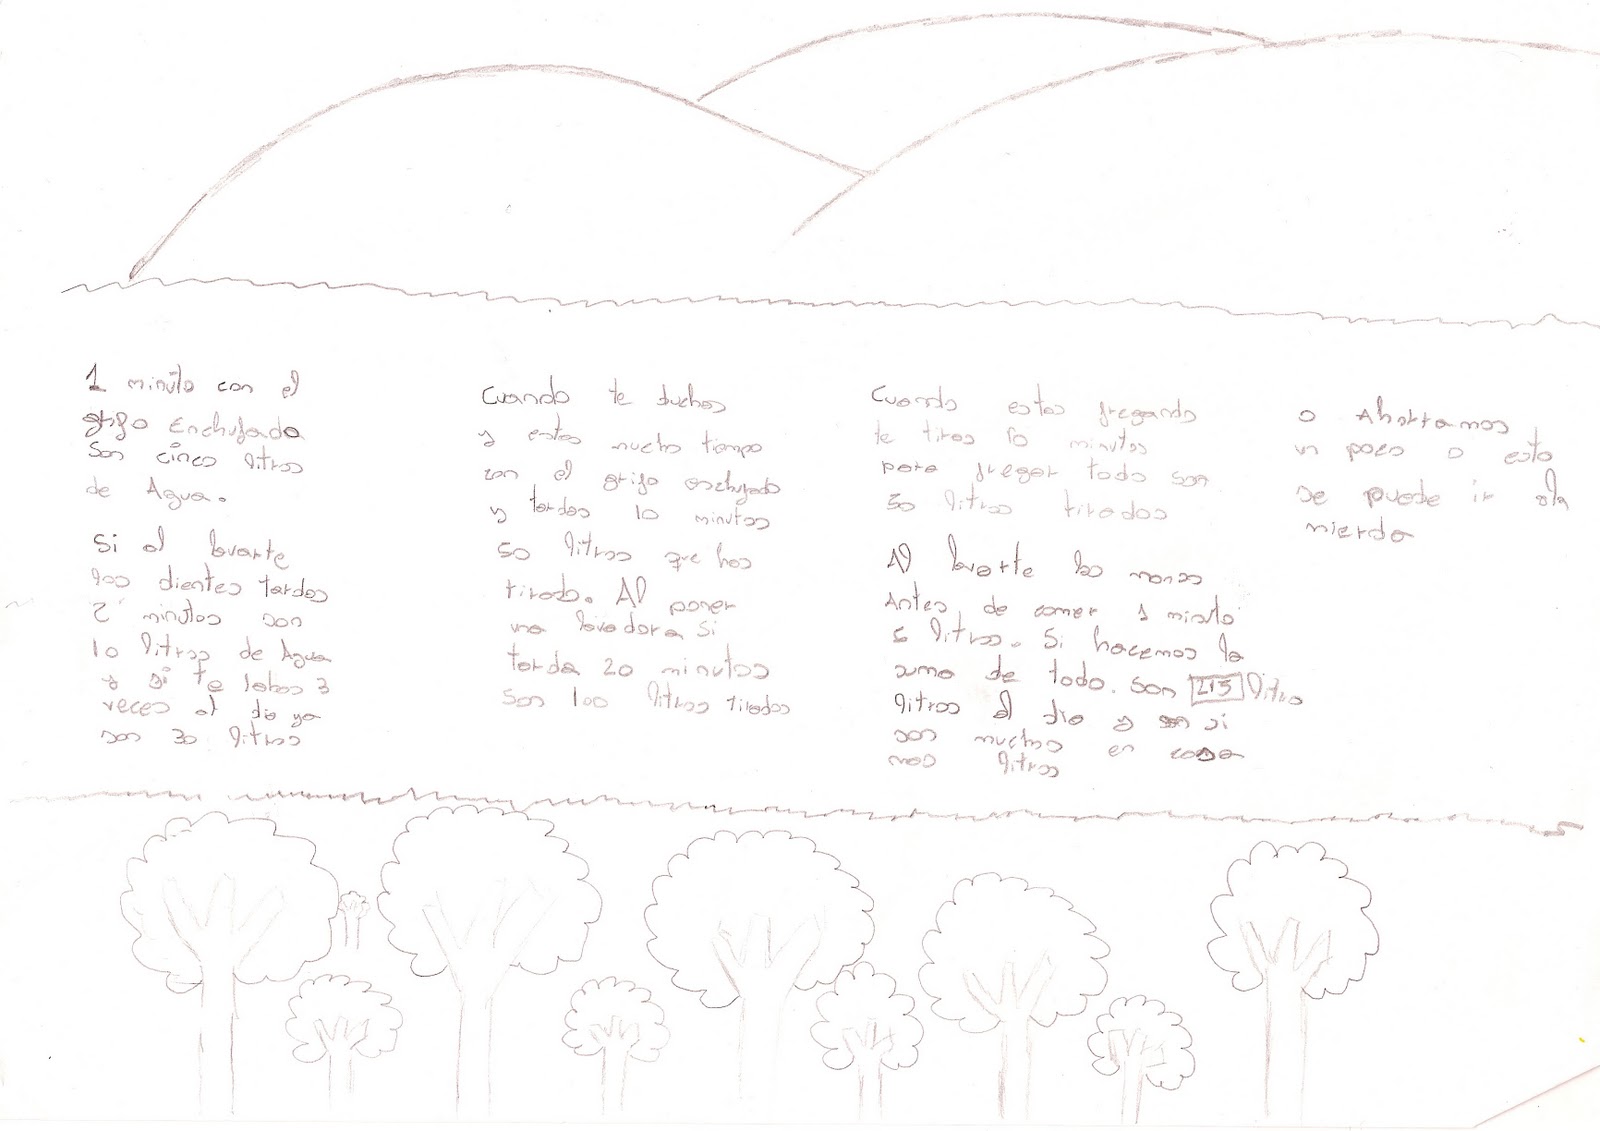 1 minuto con el
grifo Enchufado
Son cinco litros
de Agua.
Si al lavarte
los dientes tardas
2 minutos son
10 litros de Agua
y si te labas 3
veces al dia ya
son 30 litros
Cuando te duchas
y estas mucho tiempo
con el grifo enchufado
y tardas 10 minutos
50 litros que has
tirado. Al poner
una lavadora si
tarda 20 minutos
son 100 litros tirados
Cuando estas fregando
te tiras 10 minutos
para fregar todo son
50 litros tirados
Al lavarte las manos
Antes de comer 1 minuto
5 litros. Si hacemos la
suma de todo. son 215 litro
litros al dia y si
son muchos en casa
mas litros
o Ahorramos
un poco o esto
se puede ir ala
mierda